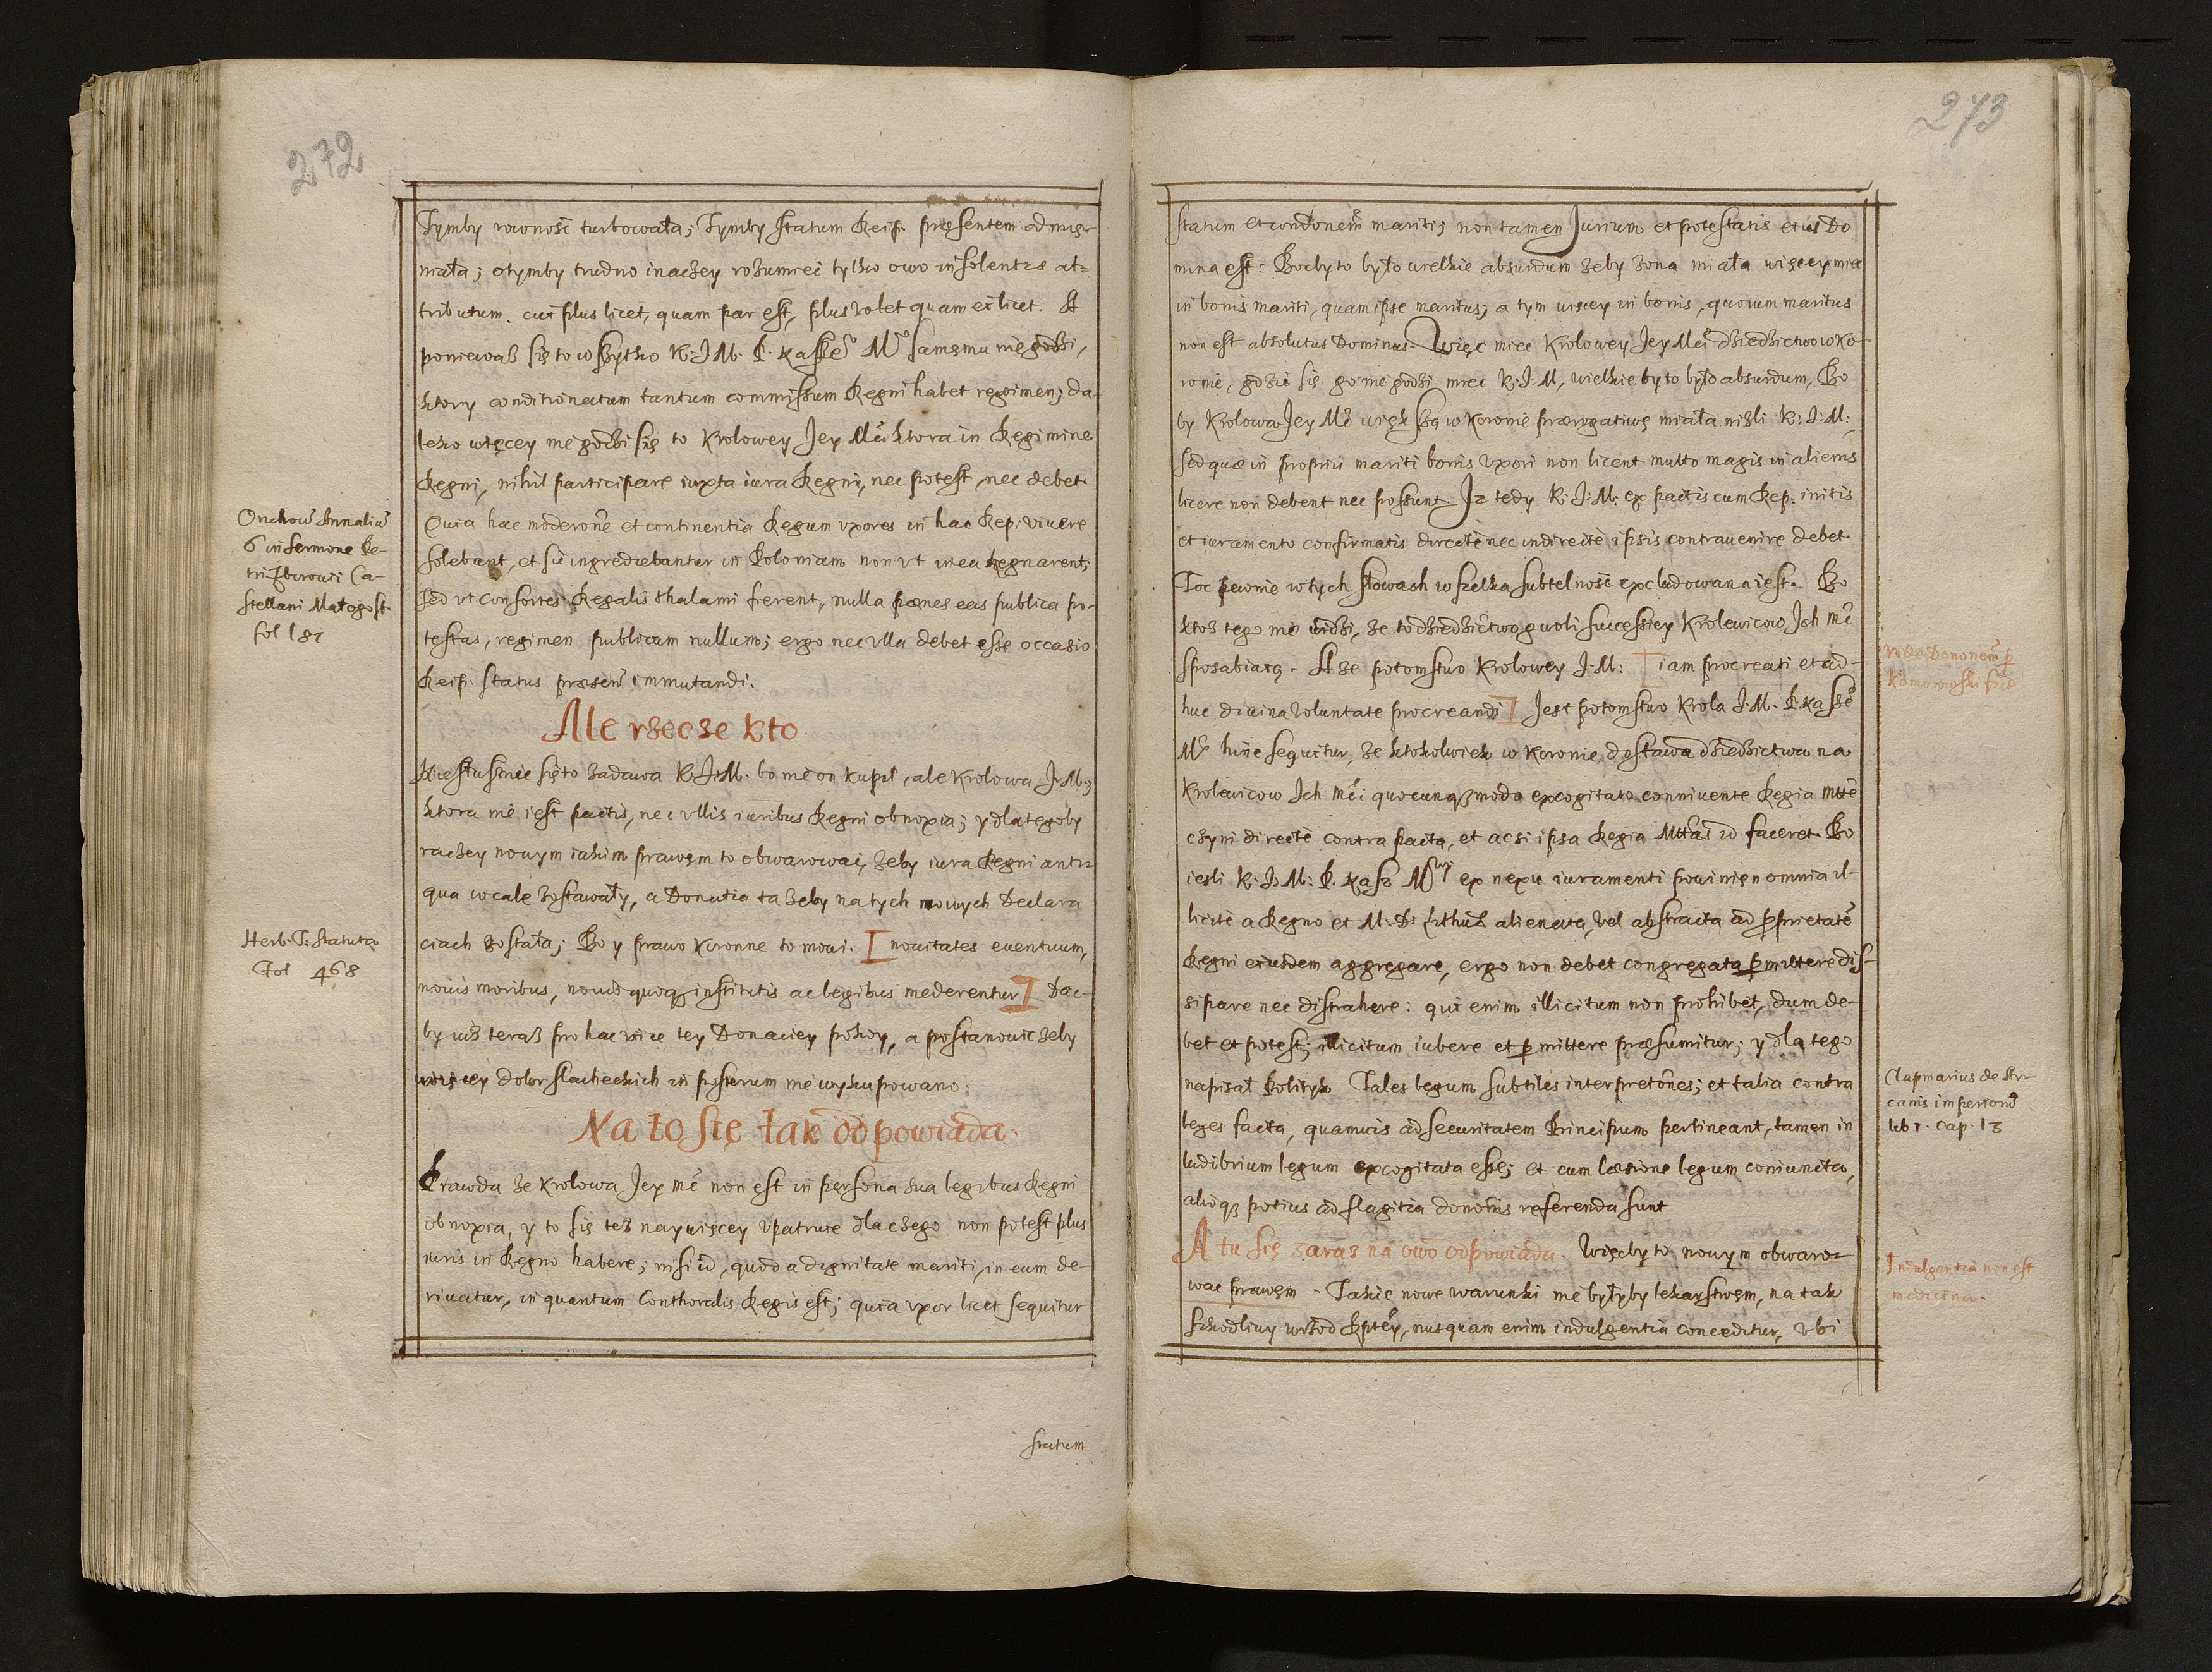 272
Tymby rownosć turbowała; Tymby statum Reip. præsentem od mię-
niała; otymby trudno inaczey rozumieć tylko owo insolentis at-
tributum. cui plus licet, quam par est, plus volet quam ei licet. A
poniewasz się to wszytko K. J. M. P. naszeo Mo samemu niegodzi,
ktory conditionatum tantum commissum Regni habet regimen; da-
leko więcey niegodzi się to Krolowey Jey Mci ktora in Regimine
Regni, nihil participare iuxta iura Regni, nec potest, nec debet.
Quia hac moderone et continentia Regum vxores in hac Rep. viuere
solebant, et sic ingrediebantur in Poloniam non vt in ea regnarent,
sed vt consortes Regalis thalami fierent, nulla pænes eas publica po-
testas, regimen publicum nullum; ergo nec vlla debet esse occasio
Reip. status præsen immutandi.
Orichow Annaliu
6 in sermone Pe-
tri Zborowii Ca-
stellani Małogost.
fol 181
Ale rzecze kto
Niesłusznie się to zadawa K. J. M. bo nie on kupił, ale Krolowa J. M.;
ktora nie iest pactis, nec vllis iuribus Regni obnoxia; y dlategoby
raczey nowym iakim prawem to obwarowac, żeby iura Regni anti-
qua wcale zostawały, a Donatia ta żeby na tych nowych Declara
ciach została; Bo y prawo Koronne to mowi. I nouitates euentuum,
nouis moribus, nouis quoq; institutis ac legibus mederentur I Dać
by iusz teraz pro hac vice tey Donaciey pokoy, a postanowic żeby
więcey dobr slacheckich in posterum nie wykupowano:
Herb. J. Statuta
Fol 468
Na to się tak odpowiada.
Prawda ze Krolowa Jey mć non est in persona sua legibus Regni
obnoxia, y to się tesz naywięcey vpatruie dla czego non potest plus
iuris in Regno habere, nisi id, quod a dignitate mariti, in eum de-
riuatur, in quantum Conthoralis Regis est; quia vxor licet sequitur
statum
273
statum et condonem mariti; non tamen Jurium et potestatis eius Do
mina est: Bocby to było wielkie absurdum żeby żona miała więcey mieć
in bonis mariti, quam ipse maritus; a tym więcey in bonis, quorum maritus
non est absolutus Dominus. Więc mieć Krolowey Jey Mci dziedzictwo w Ko-
ronie, gdzie się go niegodzi mieć K. J. M, wielkie by to było absurdum, Bo
by Krolowa Jey Mć większą w Koronie prærogatiwę miała niżli K. J. M.;
sed quæ in propriis mariti bonis vxori non licent multo magis in alienis
licere non debent nec possunt. Jz tedy K. J. M. ex pactis cum Rep. initis
et iuramento confirmatis directe nec indirecte ipsis contrauenire debet.
Toc pewnie w tych słowach wszelka subtelność excludowana iest. Bo
ktosz tego nie widzi, że to dziedzictwo gwoli successiey Krolewicow Jch mć
sposabiaią. A że potomstwo Krolowey J. M: I iam procreati et ad-
huc diuina voluntate procreandi I Jest potomstwo Krola J. M. P. nasze
Mo hinc sequitur, że ktokolwiek w Koronie dostawa dziedzictwa na
Krolewicow Jch Mći quocunq; modo excogitato conniuente Regia mtte
czyni directe contra pacta, et ac si ipsa Regia Mttas id faceret. Bo
iesli K. J. M: P. nasz Mwy ex nexu iuramenti powinien omnia il-
licite a Regno et M. D. Lithuæ alienata, vel abstracta ad proprietate
Regni eiusdem aggregare, ergo non debet congregata permittere dis-
sipare nec distrahere: qui enim illicitum non prohibet, dum de-
bet et potest; illicitum iubere et permittere præsumitur; y dla tego
napisał Polityk Tales legum subtiles interpretones; et talia contra
leges facta, quamuis ad securitatem Principum pertineant, tamen in
ludibrium legum excogitata esse; et cum læsione legum coniuncta,
alioq; potius ad flagitia donoñis referenda sunt
Vide Dononem p
Komorowski fact
Clapmarius de Ar-
canis imperioru
lib 1. cap. 13
A tu się zaraz na owo odpowiada. Więcby to nowym obwaro-
wac prawem. Takie nowe warunki nie byłyby lekarstwem, na tak
szkodliwy wrzod Rptey, nusquam enim indulgentia conceditur, vbi
Indulgentia non est
medicina.